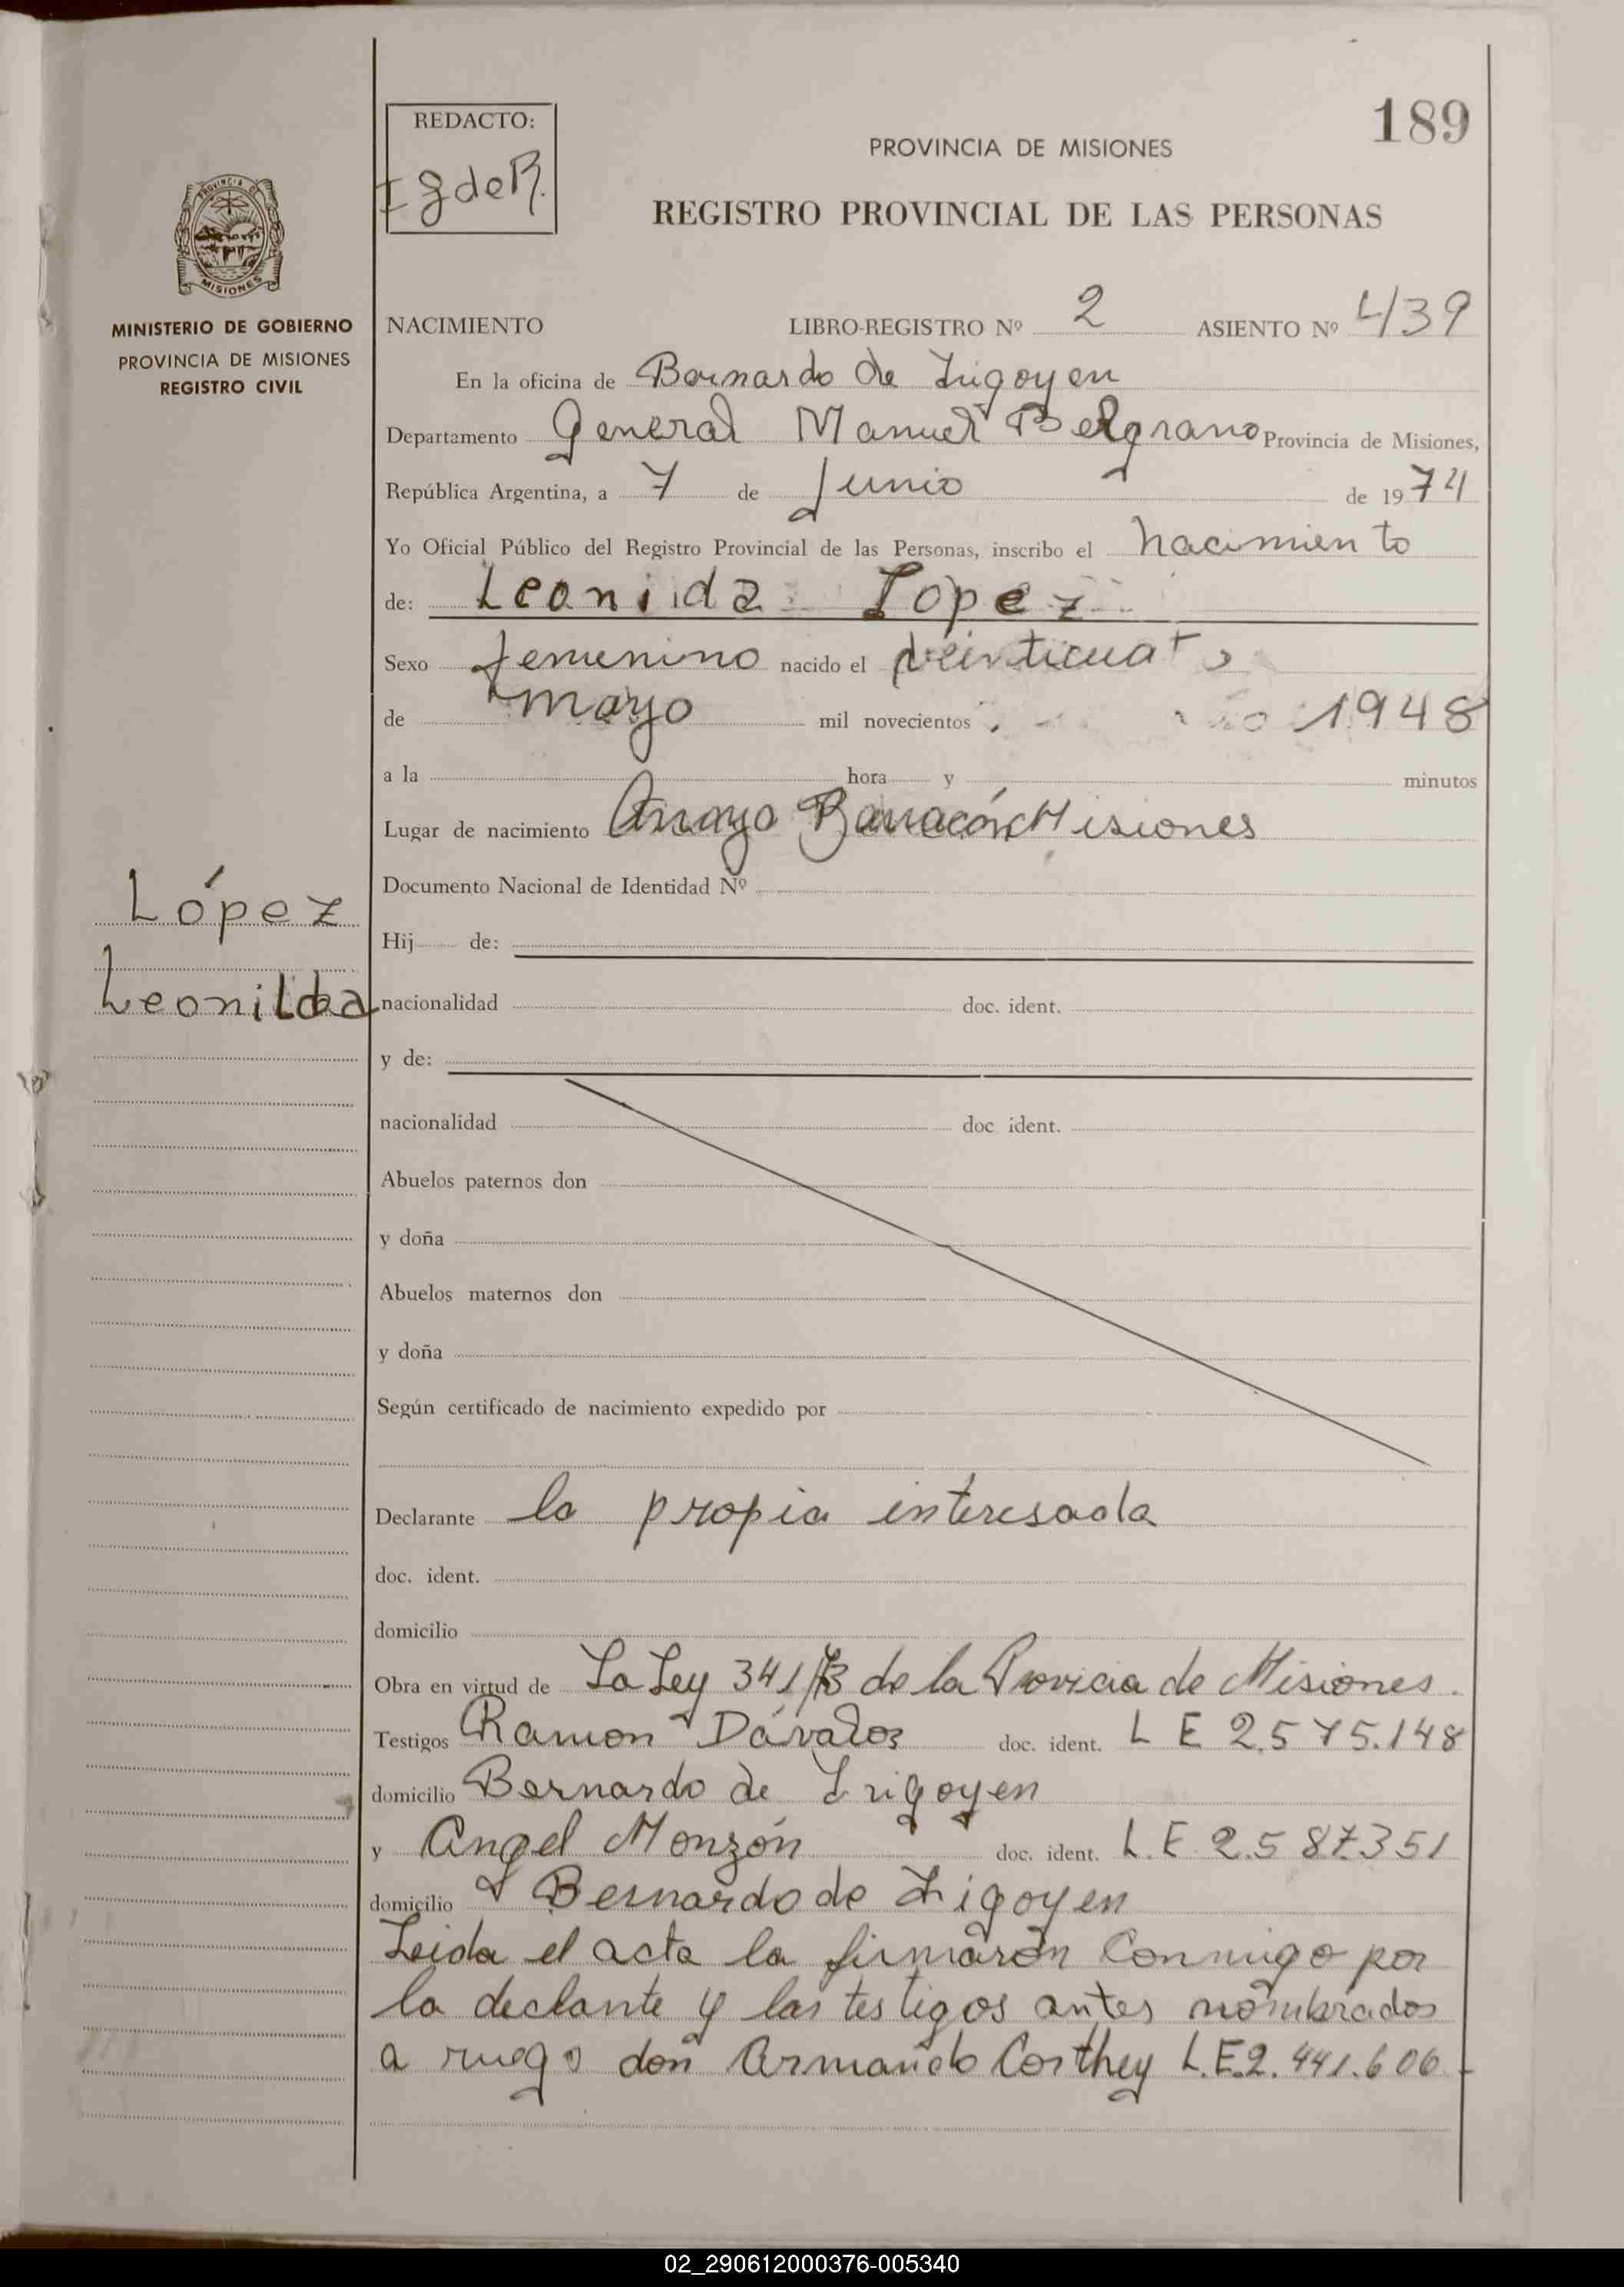 189
REDACTO:
I g de R.
PROVINCIA DE MISIONES
REGISTRO PROVINCIAL DE LAS PERSONAS
PROVINCIA DE
MISIONES
MINISTERIO DE GOBIERNO
PROVINCIA DE MISIONES
REGISTRO CIVIL
NACIMIENTO LIBRO-REGISTRO Nº 2 ASIENTO Nº 439
En la oficina de Bernardo de Irigoyen
Departamento General Manuel Belgrano Provincia de Misiones,
República Argentina, a 7 de Junio de 1974
Yo Oficial Público del Registro Provincial de las Personas, inscribo el nacimiento
de: Leonida Lopez
Sexo femenino nacido el
de mayo mil novecientos 1948
a la hora y minutos
Lugar de nacimiento Arroyo Barracón Misiones
Documento Nacional de Identidad Nº
López
Hij de:
Leonilda
nacionalidad doc. ident.
y de:
nacionalidad doc ident.
Abuelos paternos don
y doña
Abuelos maternos don
y doña
Según certificado de nacimiento expedido por
Declarante la propia interesada
doc. ident.
domicilio
Obra en virtud de La Ley 341/73 de la Provicia de Misiones.
Testigos Ramon Dávalos doc. ident. L E 2.575.148
domicilio Bernardo de Irigoyen
y Angel Monzón doc. ident. L.E 2.587351
domicilio Bernardo de Irigoyen
Leida el acta la firmarón conmigo por
la declante y los testigos antes nombrados
a ruego don Armando Corthey L.E.2.441.606.-
02_290612000376-005340